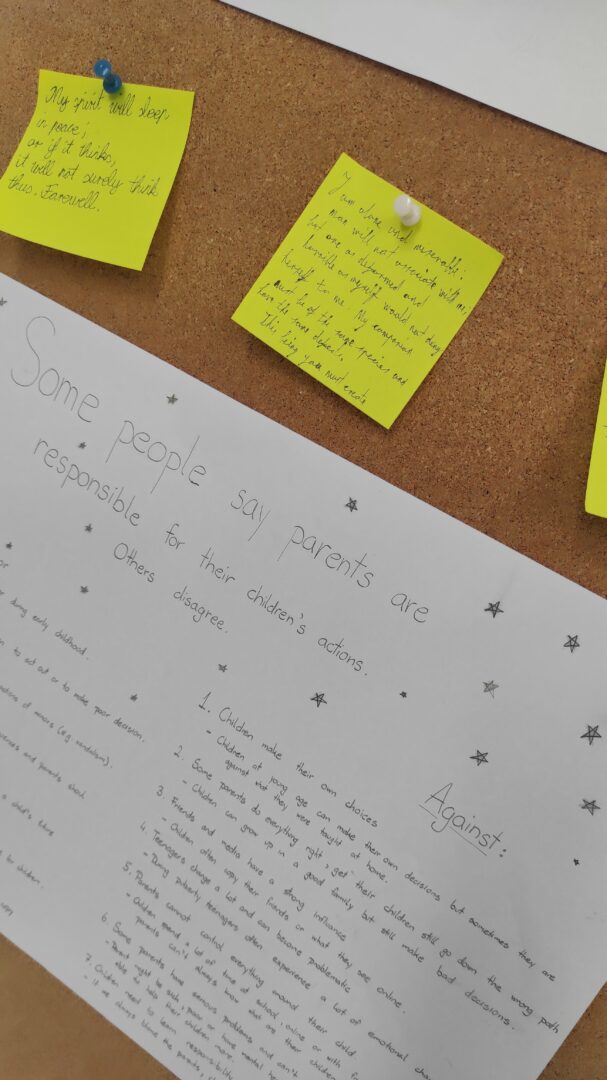 My spirit will sleep
in peace;
or if it thinks,
it will not surely think
thus. Farewell.
I am alone and miserable:
man will not associate with me;
but one as deformed and
horrible as myself would not deny
herself to me. My companion
must be of the same species and
have the same defects.
This being you must create
Some people say parents are
responsible for their children's actions.
Others disagree.
during early childhood.
to act out or to make poor decision.
of minors (e.g. vandalism).
and parents should
a child's future
for children.
Against:
1. Children make their own choices
- Children at young age can make their own decisions but sometimes they are
against what they were taught at home.
2. Some parents do everything right, yet their children still go down the wrong path
- Children can grow up in a good family but still make bad decisions.
3. Friends and media have a strong influence
- Children often copy their friends or what they see online.
4. Teenagers change a lot and can become problematic
- During puberty teenagers often experience a lot of emotional
5. Parents cannot control everything around their child
- Children spend a lot of time at school, online or with
parents can't always know what are their children
6. Some parents have serious problems and can't
- Parent might be sick, poor or have mental
able to help their children more.
7. Children need to learn responsibility
- If we always blame the parents,